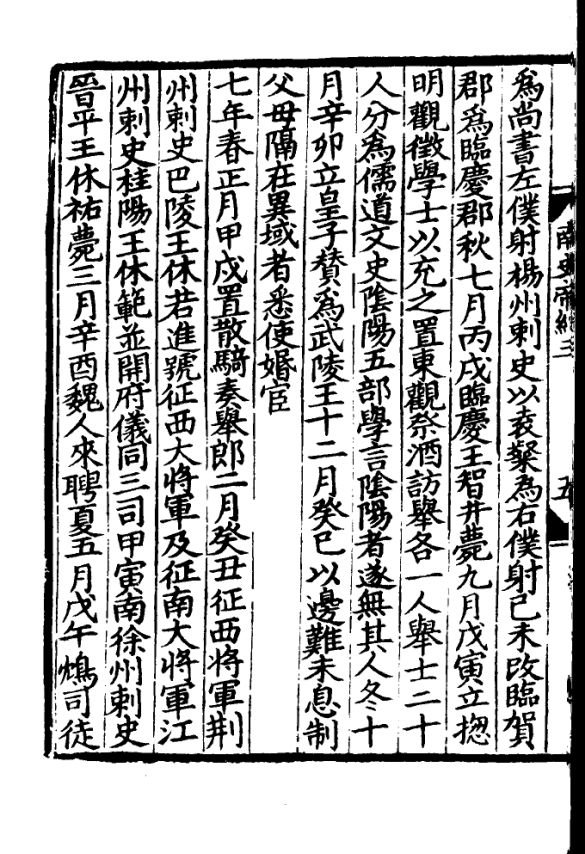 南史帝紀三
五
爲尚書左僕射楊州刺史以袁粲為右僕射己未改臨賀
郡爲臨慶郡秋七月丙戌臨慶王智井薨九月戊寅立揔
明觀徵學士以充之置東觀祭酒訪舉各一人舉士二十
人分為儒道文史陰陽五部學言陰陽者遂無其人冬十
月辛卯立皇子賛爲武陵王十二月癸巳以邊難未息制
父母隔在異域者悉使婚宦
七年春正月甲戌置散騎奏舉郎二月癸丑征西將軍荆
州刺史巴陵王休若進號征西大將軍及征南大將軍江
州刺史桂陽王休範並開府儀同三司甲寅南徐州刺史
晉平王休祐薨三月辛酉魏人來聘夏五月戊午鴆司徒